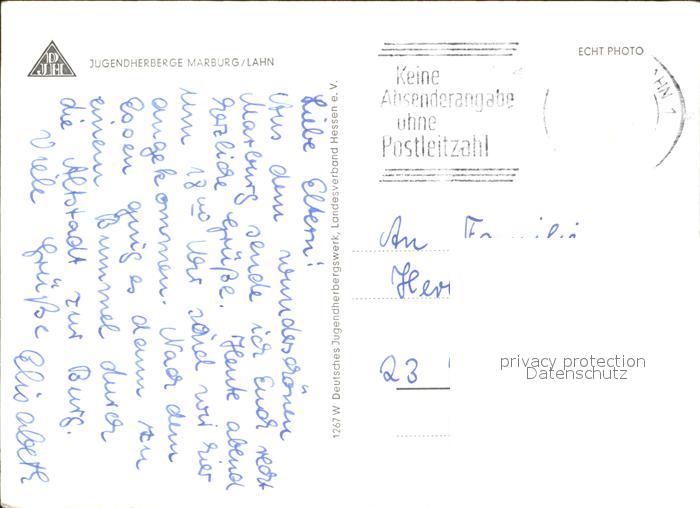 DJH
JUGENDHERBERGE MARBURG/LAHN
Liebe Eltern!
Aus dem wunderschönen
Marburg sende ich Euch recht
herzliche Grüße. Heute abend
um 18.00 Uhr sind wir hier
angekommen. Nach dem
Essen ging es dann zu
einem Bummel durch
die Altstadt zur Burg.
Viele Grüße Elisabeth
1267 W Deutsches Jugendherbergswerk, Landesverband Hessen e. V.
ECHT PHOTO
Keine
Absenderangabe
ohne
Postleitzahl
HN 1
An Familie
Her
23
privacy protection
Datenschutz